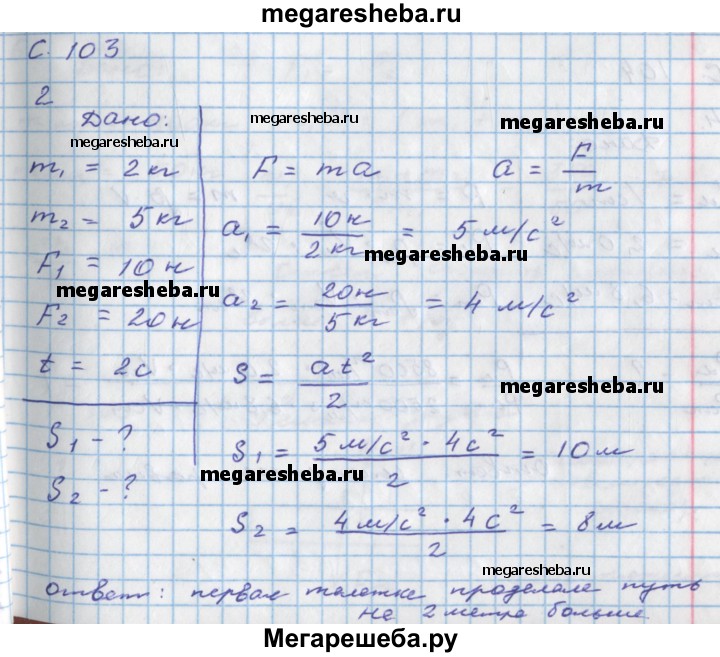 megaresheba.ru
С. 103
2
Дано:
megaresheba.ru
m₁ = 2 кг
m₂ = 5 кг
F₁ = 10 н
megaresheba.ru
F₂ = 20 н
t = 2с
S₁ - ?
S₂ - ?
megaresheba.ru
megaresheba.ru
F = ma a = F/m
a₁ = 10н/2кг = 5 м/с²
megaresheba.ru
a₂ = 20н/5кг = 4 м/с²
S = at²/2
megaresheba.ru
S₁ = 5м/с² · 4с²/2 = 10м
megaresheba.ru
S₂ = 4м/с² · 4с²/2 = 8м
megaresheba.ru
Ответ: первая тележка проделала путь
на 2 метра больше.
Мегарешеба.ру